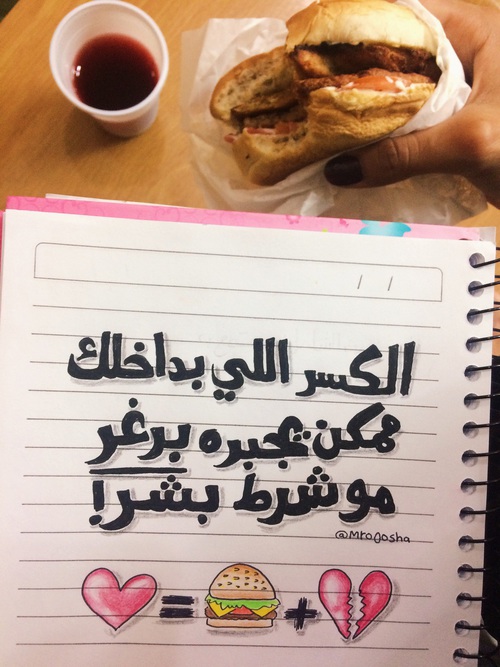 الكسر اللي بداخلك
ممكن يجبره برغر
مو شرط بشر!
@Mrogosha